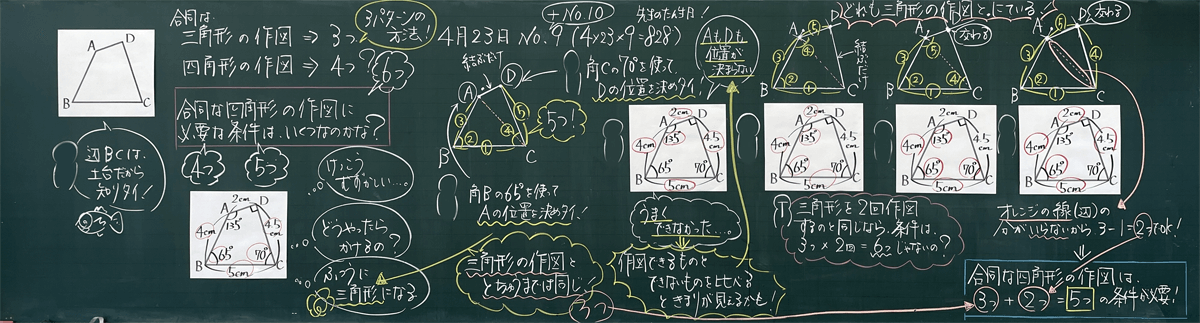 合同な
三角形の作図 ⇒ 3つ
四角形の作図 ⇒ 4つ?
3パターンの
方法!
6つ
A D
B C
辺BCは、
土台だから
知りタイ!
合同な四角形の作図に
必要な条件は、いくつなのかな?
4つ
5つ
2cm
A D
4cm 135° 4.5cm
65° 70°
B 5cm C
けっこう
むずかしい…。
どうやったら
かけるの?
ふつうに
三角形になる
4月23日 No.9 (4×23×9=828)
+No.10
先生のたん生日!
結ぶだけ
A D
③ ⑤
② ④
B ① C
5つ!
角Bの65°を使って
Aの位置を決めタイ!
三角形の作図と
とちゅうまでは同じ
3つ
角Cの70°を使って
Dの位置を決めタイ!
AもDも
位置が
決まらない
2cm
A D
4cm 135° 4.5cm
65° 70°
B 5cm C
うまく
できなかった…。
作図できるものと
できないものを比べると
きまりが見えるかも!
どれも三角形の作図と似にている!
A D
③ ④ ⑤
② ①
B C
結ぶだけ
2cm
A D
4cm 135° 4.5cm
65° 70°
B 5cm C
T 三角形を2回作図
するのと同じなら、条件は、
3つ×2回=6つじゃないの?
A D
交わる
③ ⑤
② ④
B ① C
2cm
A D
4cm 135° 4.5cm
65° 70°
B 5cm C
A D
交わる
③ ⑤ ④
② ①
B C
2cm
A D
4cm 135° 4.5cm
65° 70°
B 5cm C
オレンジの線(辺)の
分がいらないから 3-1=2つでOK!
合同な四角形の作図は、
3つ+2つ=5つの条件が必要!